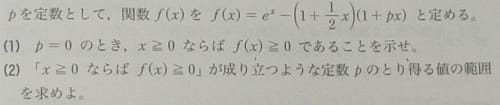 pを定数として，関数 f(x) を f(x)=e^x−(1+1/2x)(1+px) と定める。
(1) p=0 のとき，x≧0 ならば f(x)≧0 であることを示せ。
(2) 「x≧0 ならば f(x)≧0」が成り立つような定数 p のとり得る値の範囲
を求めよ。